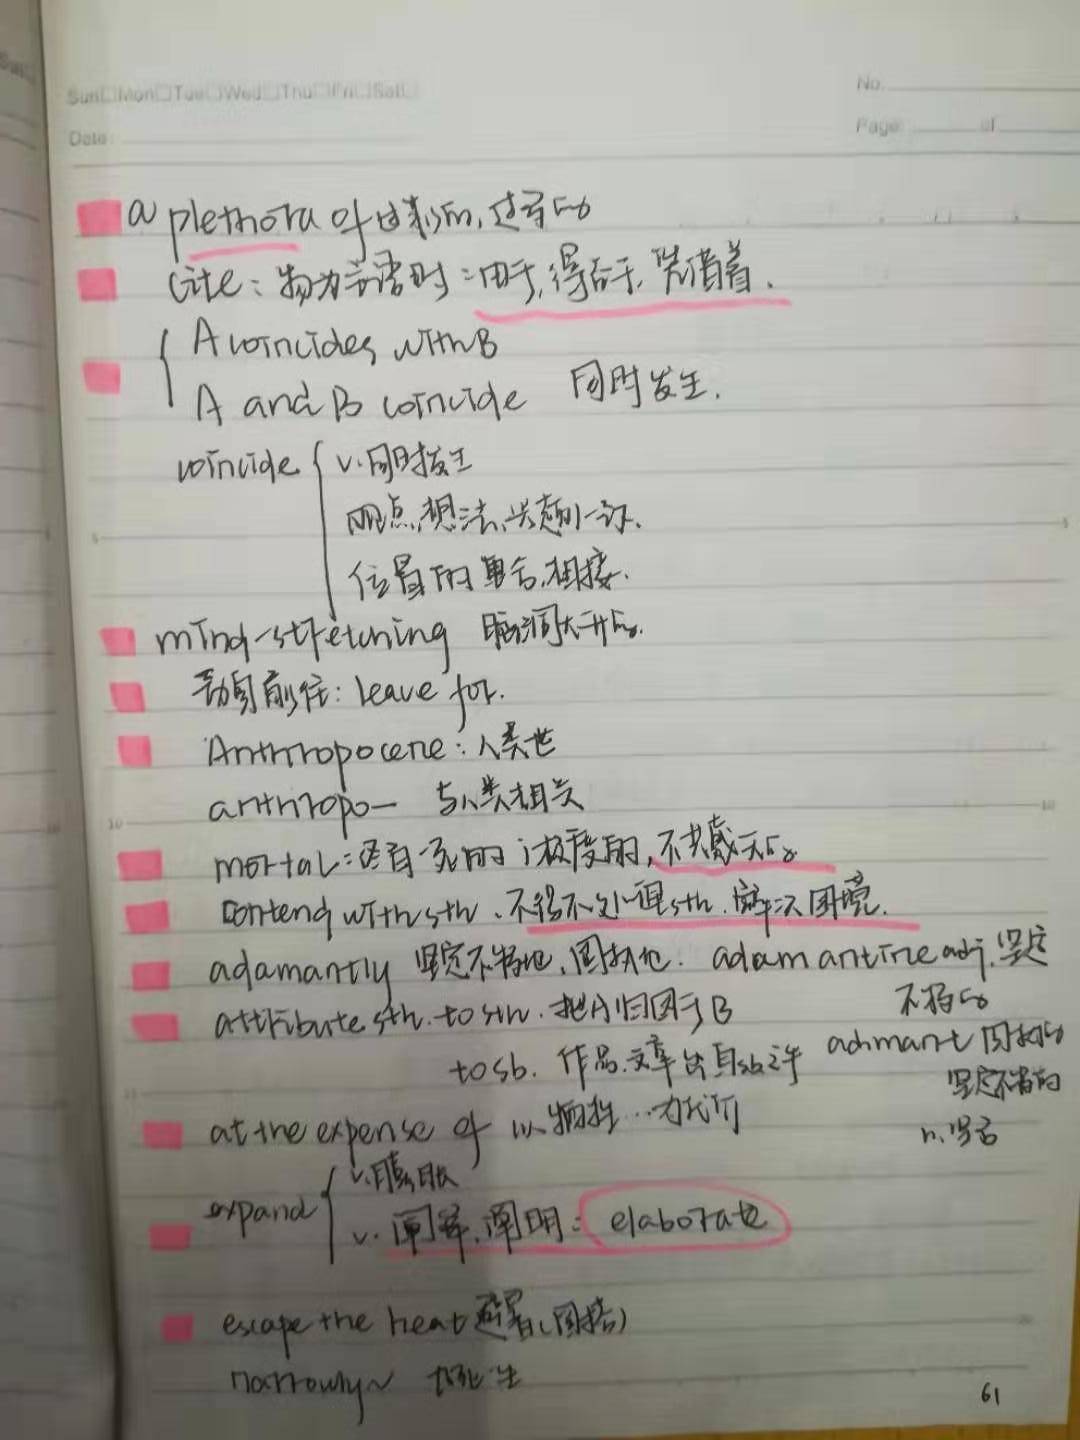 Sun□Mon□Tue□Wed□Thu□Fri□Sat□
No.
Date:
Page: of
a plethora of 过剩的, 过多的
cite: 物为主语时: 由于, 得益于,
A coincides with B
A and B coincide 同时发生.
coincide { v. 同时发生
观点, 想法, 兴趣一致.
位置的重合, 相接.
mind-stretching 脑洞大开的.
动身前往: leave for.
Anthropocene: 人类世
anthropo- 与人类相关
mortal: 终有一死的; 极度的, 不共戴天的
contend with sth. 不得不处理sth. 解决困境.
adamantly 坚定不移地, 固执地. adamantine adj. 坚定
不移的
attribute sth. to sth. 把A归因于B
to sb. 作品, 文章出自sb之手
admant 固执的
坚定不移的
n.
at the expense of 以牺牲…为代价
expand { v. 膨胀
v. 阐释, 阐明: elaborate
escape the heat 避暑 (固搭)
narrowly~
5
10
15
20
61